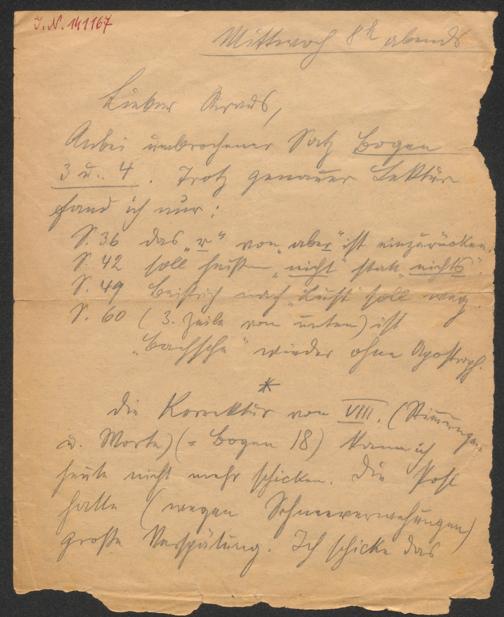 J.N. 141167
Mittwoch 8h abends
Lieber
Anbei umbrochener Satz Bogen
3 u. 4. Trotz genauer Lektüre
fand ich nur:
S. 36 das „r“ von „aber“ ist einzurücken.
S. 42 soll heißen „nicht“ statt „nichts“.
S. 49 Beistrich nach „Luft“ soll weg.
S. 60 (3. Zeile von unten) ist
„Bachsche“ wieder ohne Apostroph.
*
Die Korrektur von VIII. (Stimmungen
u. Worte) (= Bogen 18) kann ich
heute nicht mehr schicken. Die Post
hatte (wegen Schneeverwehungen)
große Verspätung. Ich schicke das